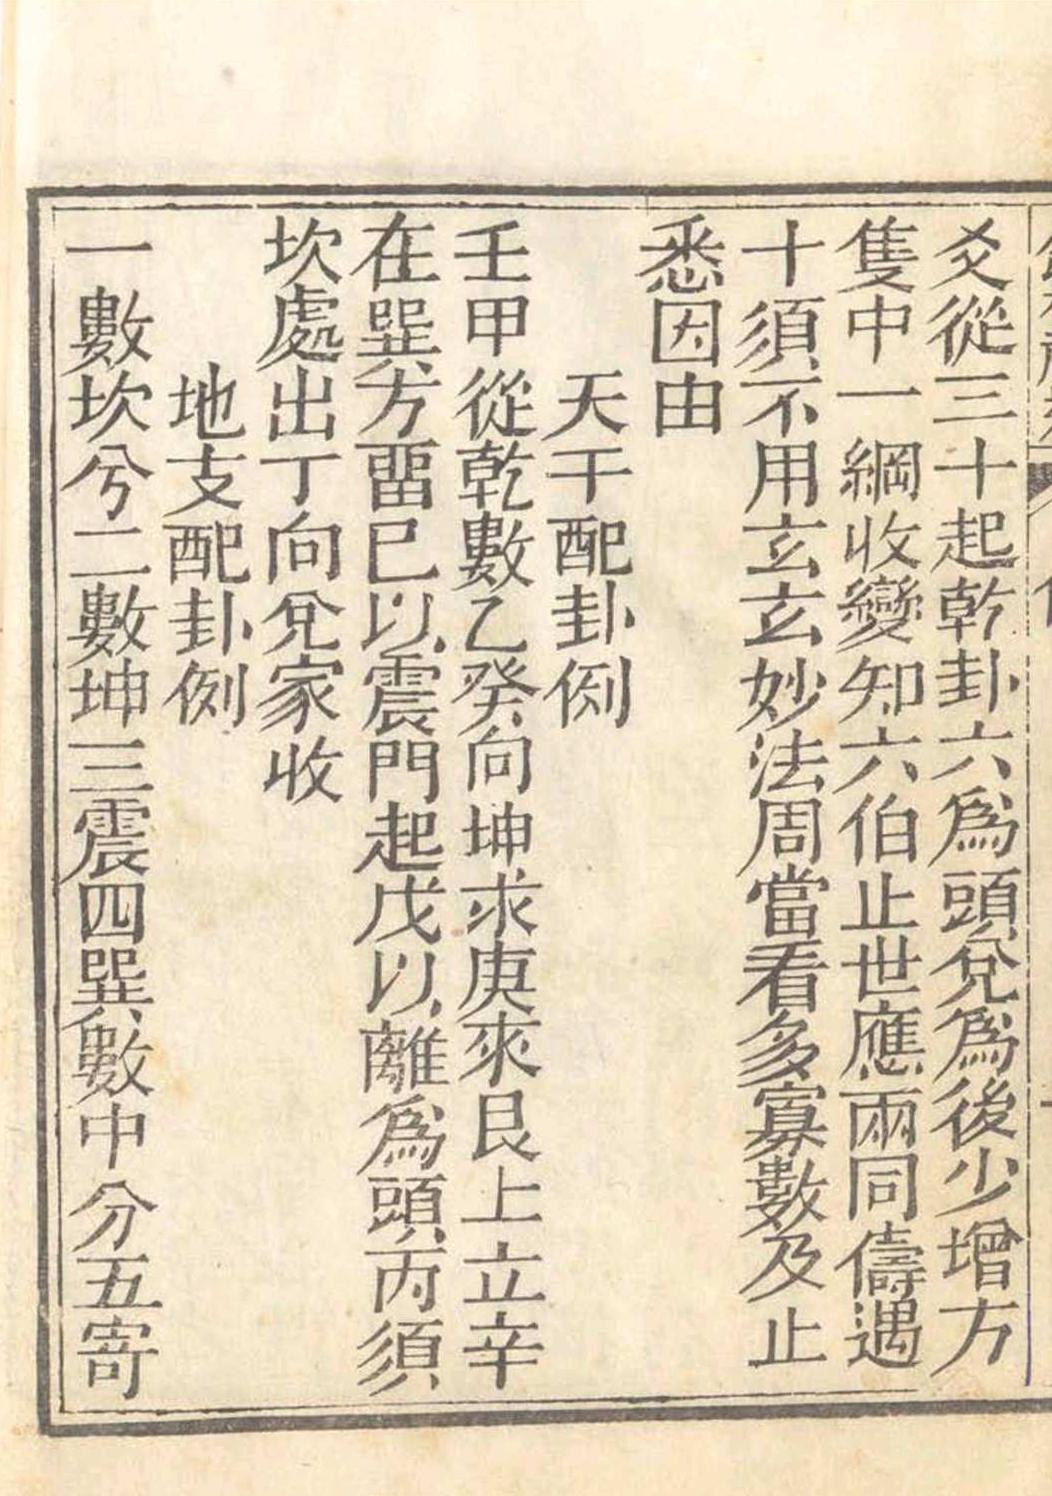 爻從三十起乾卦六爲頭兌爲後少增方
隻中一綱收變知六伯止世應兩同儔遇
十須不用玄玄妙法周當看多寡數及止
悉因由
天干配卦例
壬甲從乾數乙癸向坤求庚來艮上立辛
在巽方畱巳以震門起戊以離爲頭丙須
坎處出丁向兌家收
地支配卦例
一數坎兮二數坤三震四巽數中分五寄